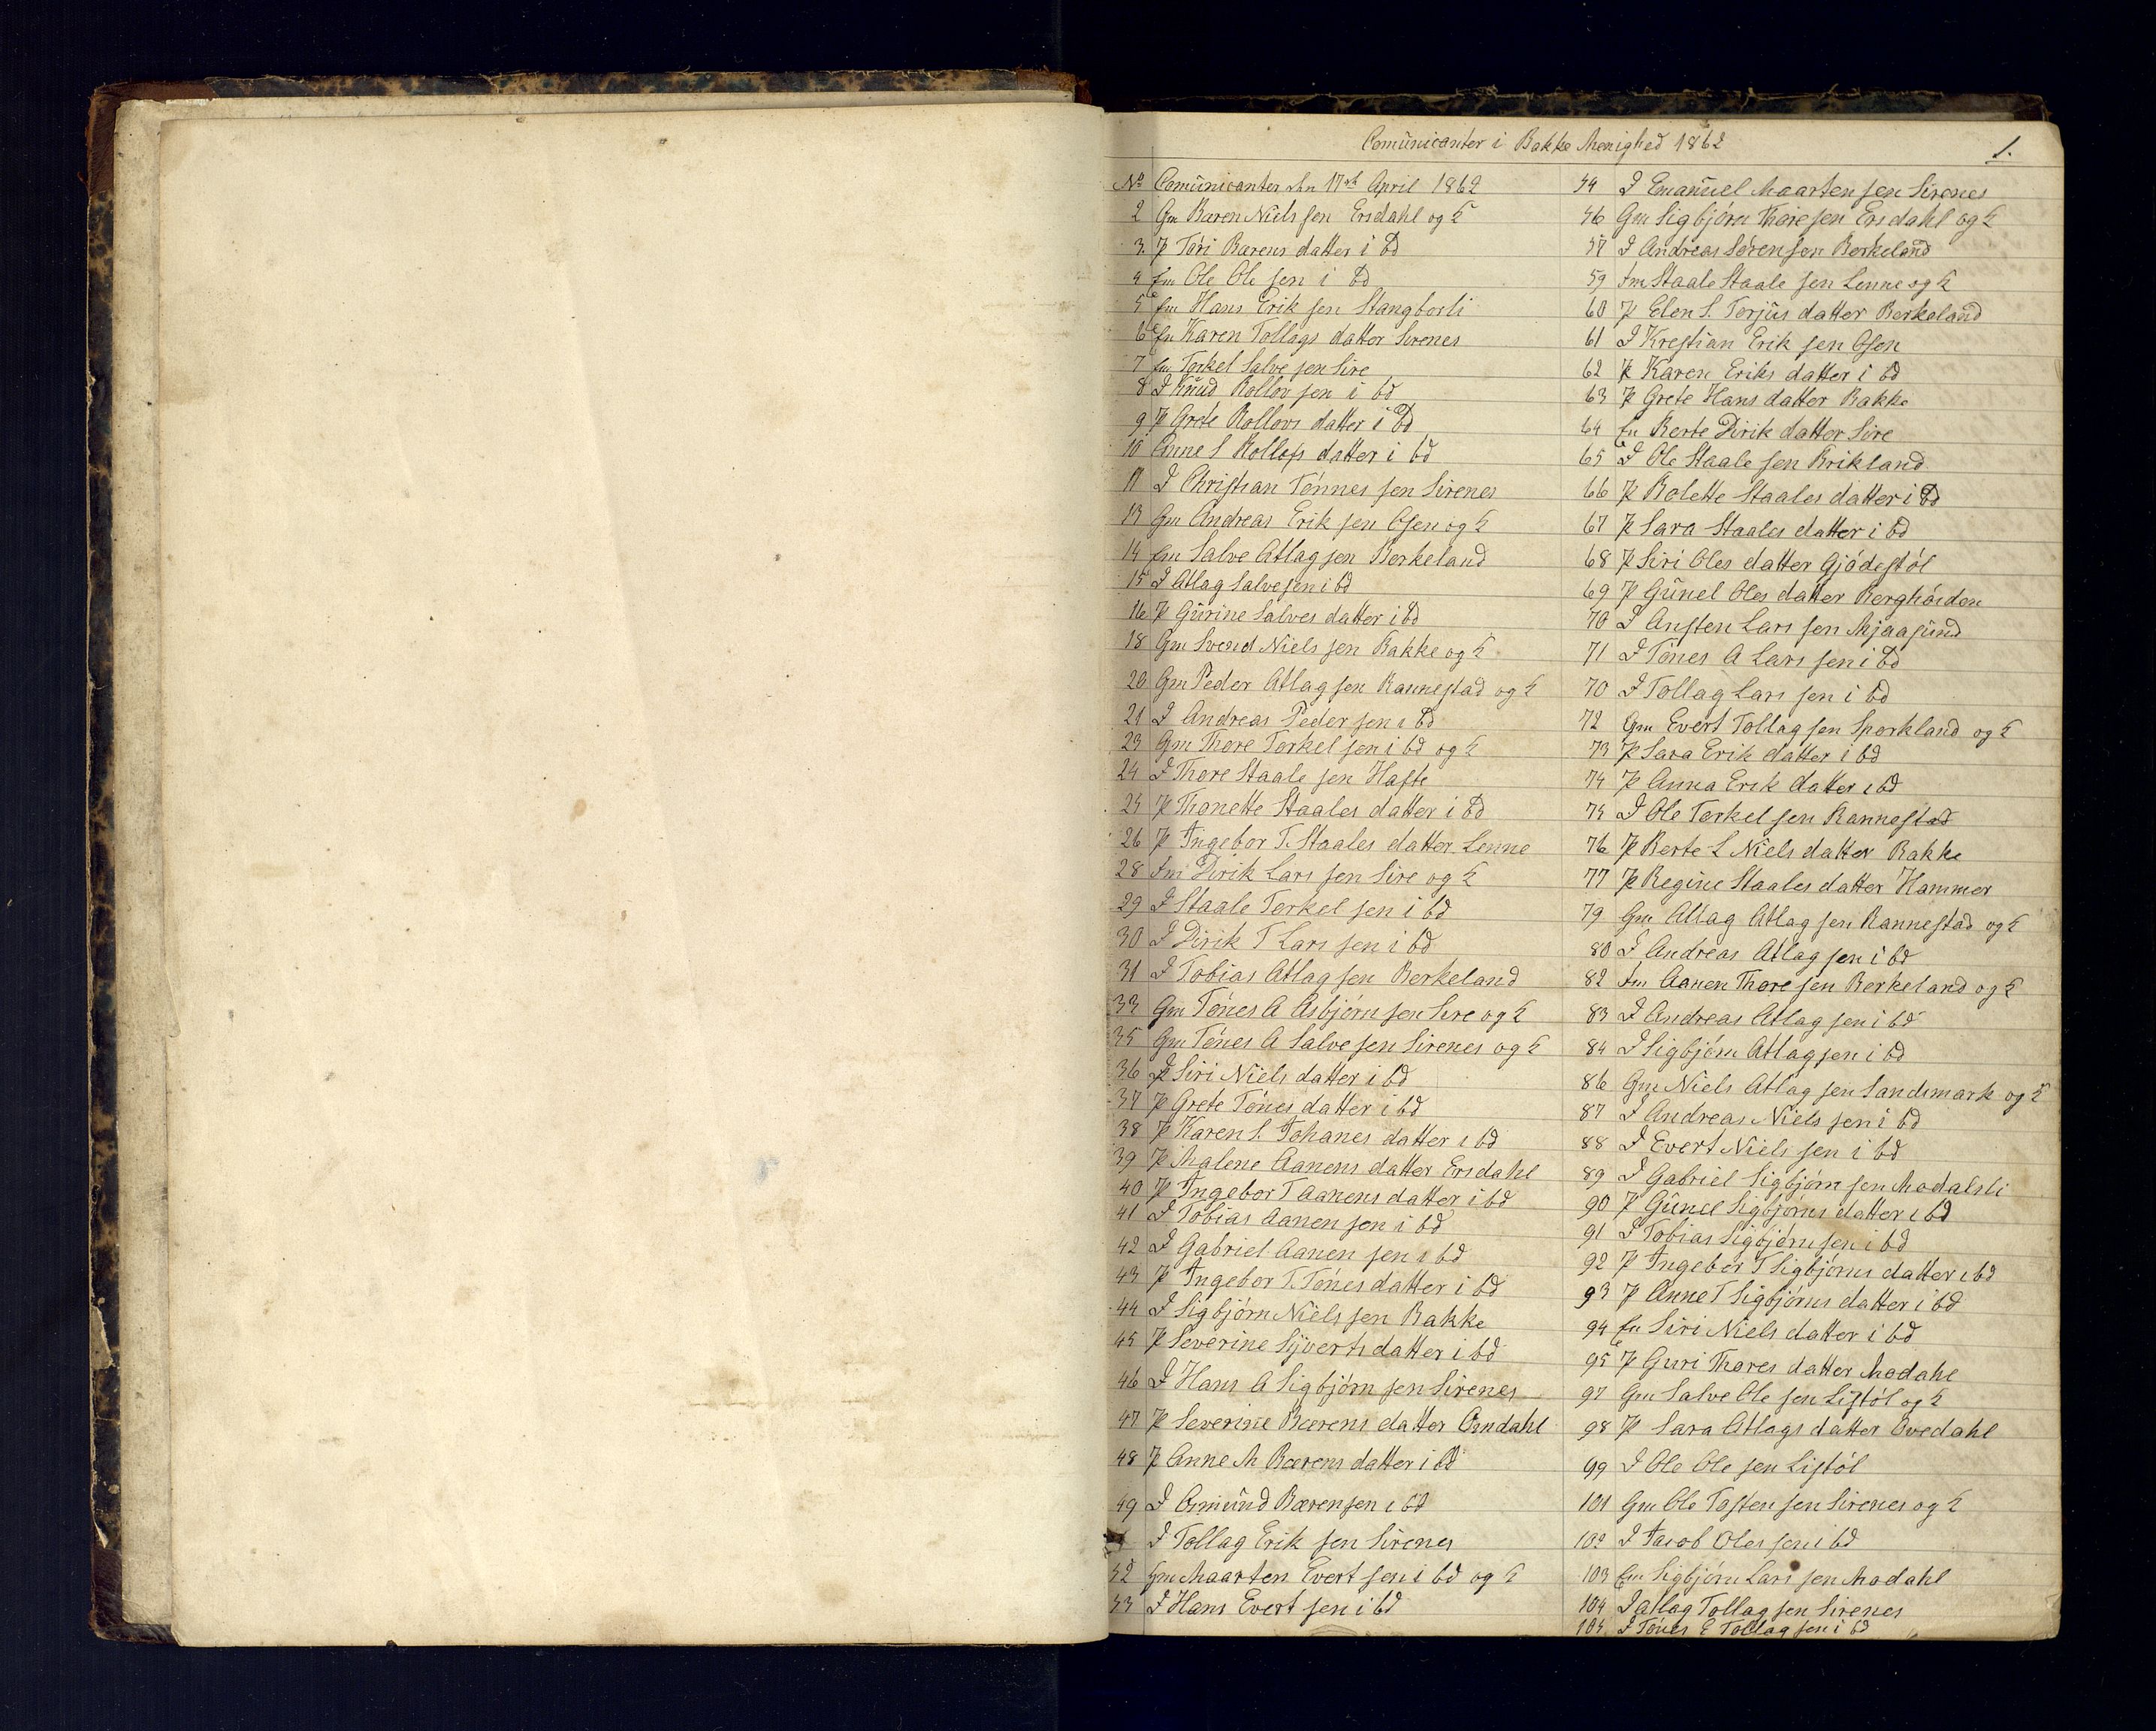 Comūnicanter i Bakke Menighed 1862
1.
No Comūnicanter den 17de April 1862
2 Gm Bæren Niels sen Ersdahl og h
3. P Tóri Bærens datter i bd
4 fm Ole Ole sen i bd
5 fm Hans Erik sen Stangborli
6 fn Karen Tollags datter Sirenes
7 fm Torkel Salve sen Sire
8 J Knūd Rollov sen i bd
9 P Grete Rollovs datter i bd
10 Anne S Rollofs datter i bd
11 J Christian Tónnes sen Sirenes
13 Gm Andreas Erik sen Osen og h
14 fm Salve Atlag sen Berkeland
15 J Atlag Salve sen i bd
16 P Gūrine Salves datter i bd
18 Gm Svend Niels sen Bakke og h
20 Gm Peder Atlag sen Rannestad og h
21 J Andreas Peder sen i bd
23 Gm Thore Torkel sen i bd og h
24 J Thore Staale sen Hafte
25 P Thonette Staales datter i bd
26 P Ingebor T. Staales datter Lenne
28 fm Dirik Lars sen Sire og h
29 J Staale Torkel sen i bd
30 J Dirik T Lars sen i bd
31 J Tobias Atlag sen Berkeland
33 Gm Tónes A Asbjórn sen Sire og h
35 Gm Tónes A Salve sen Sirenes og h
36 P Siri Niels datter i bd
37 P Grete Tónes datter i bd
38 P Karen S. Johanes datter i bd
39 P Malene Aanens datter Ersdahl
40 P Ingebor T Aanens datter i bd
41 J Tobias Aanen sen i bd
42 J Gabriel Aanen sen i bd
43 P Ingebor T. Tónes datter i bd
44 J Sigbjórn Niels sen Bakke
45 P Severine Syverts datter i bd
46 J Hans A Sigbjórn sen Sirenes
47 P Severine Bærens datter Omdahl
48 P Anne M Bærens datter i bd
49 J Omūnd Bæren sen i bd
J Tollag Erik sen Sirenes
52 Gm Maarten Evert sen i bd og h
53 J Hans Evert sen i bd
54 J Emanūel Maarten sen Sirenes
56 Gm Sigbjórn Thore sen Ersdahl og h
57 J Andreas Sóren sen Berkeland
59 fm Staale Staale sen Lenne og h
60 P Elen S. Torjūs datter Berkeland
61 J Kristian Erik sen Osen
62 P Karen Eriks datter i bd
63 P Grete Hans datter Bakke
64 fn Berte Dirik datter Sire
65 J Ole Staale sen Brikland
66 P Bolette Staales datter i bd
67 P Sara Staales datter i bd
68 P Siri Oles datter Gjódestól
69 P Gūnel Oles datter Berghóiden
70 J Ansten Lars sen Mjaasūnd
71 J Tónes A Lars sen i bd
70 J Tollag Lars sen i bd
72 Gm Evert Tollag sen Sporkland og h
73 P Sara Erik datter i bd
74 P Anna Erik datter i bd
75 J Ole Torkel sen Rannestad
76 P Berte L Niels datter Bakke
77 P Regine Staales datter Hammer
79 Gm Atlag Atlag sen Rannestad og h
80 J Andreas Atlag sen i bd
82 fm Aanen Thore sen Berkeland og h
83 J Andreas Atlag sen i bd
84 J Sigbjórn Atlag sen i bd
86 Gm Niels Atlag sen Sandsmark og h
87 J Andreas Niels sen i bd
88 J Evert Niels sen i bd
89 J Gabriel Sigbjórn sen Modalsli
90 P Gūnel Sigbjórns datter i bd
91 J Tobias Sigbjórn sen i bd
92 P Ingebor T Sigbjórns datter i bd
93 P Anne T Sigbjórns datter i bd
94 fn Siri Niels datter i bd
95 P Guri Thores datter Modahl
97 Gm Salve Ole sen Listól og h
98 P Sara Atlags datter Ovedahl
99 J Ole Ole sen Listól
101 Gm Ole Tosten sen Sirenes og h
102 J Jacob Oles sen i bd
103 fm Sigbjórn Lars sen Modahl
104 J Atlag Tollag sen Sirenes
105 J Tónes E Tollag sen i bd